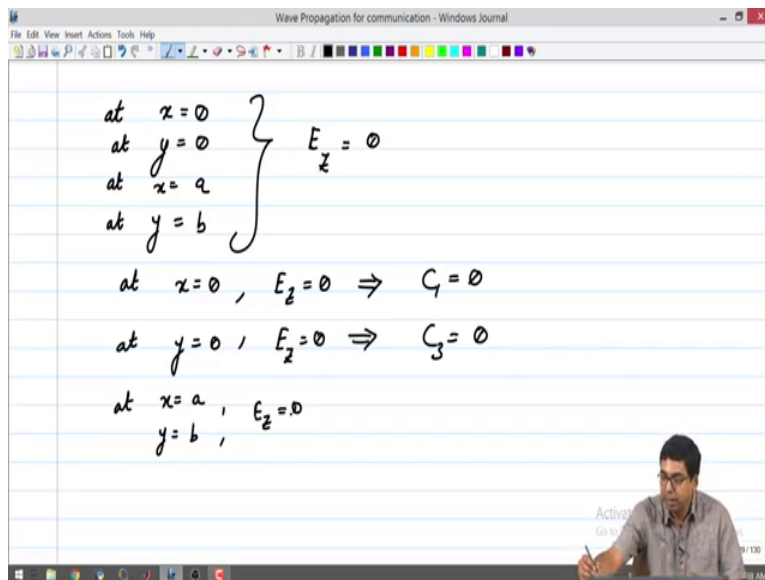 Wave Propagation for communication - Windows Journal
File Edit View Insert Actions Tools Help
B I
at x = 0
at y = 0
at x = a
at y = b
E_z = 0
at x = 0 , E_z = 0 ⇒ C_1 = 0
at y = 0 , E_z = 0 ⇒ C_3 = 0
at x = a , E_z = 0
y = b ,
Activat
Go to
/ 130